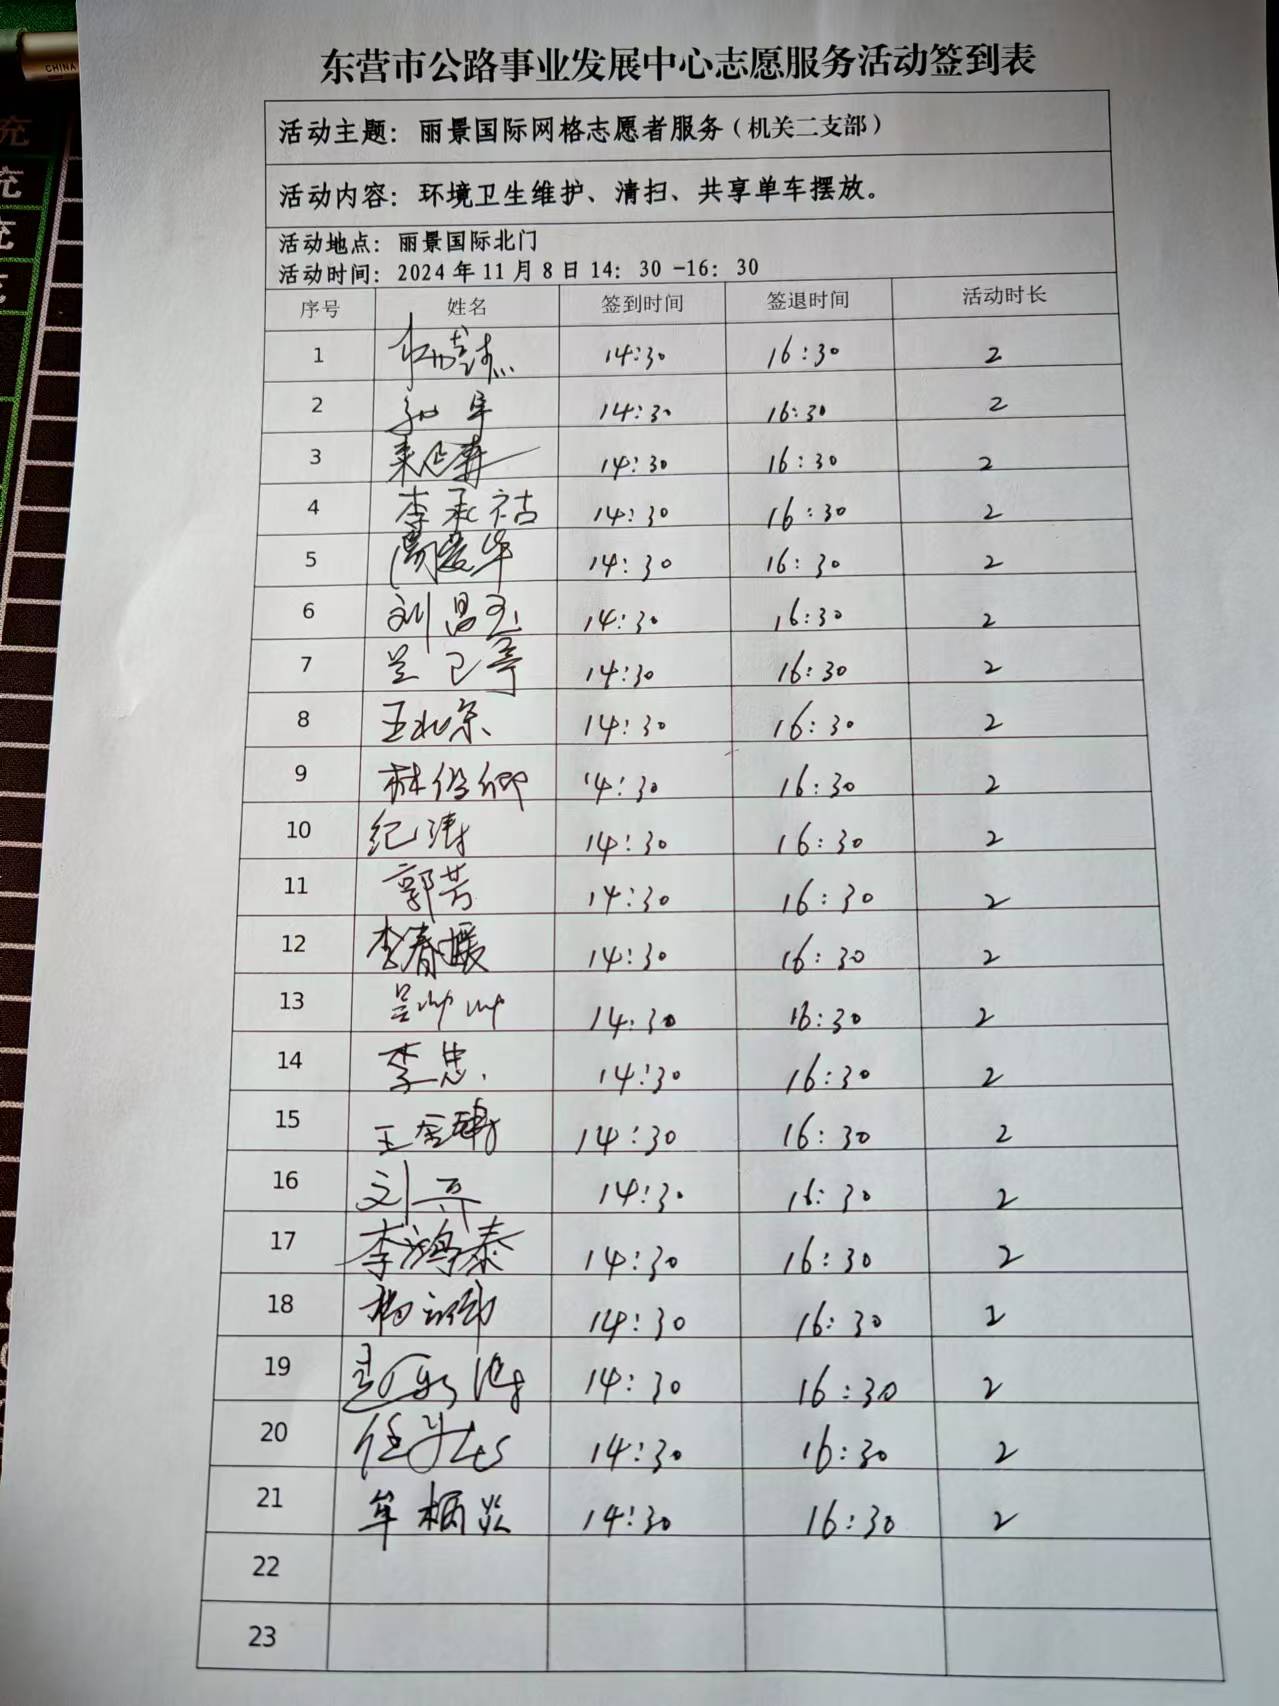 CHINA
充
充
充
充
东营市公路事业发展中心志愿服务活动签到表
活动主题：丽景国际网格志愿者服务（机关二支部）
活动内容：环境卫生维护、清扫、共享单车摆放。
活动地点：丽景国际北门
活动时间：2024年11月8日14：30-16：30
序号 姓名 签到时间 签退时间 活动时长
1 14:30 16:30 2
2 14:30 16:30 2
3 14:30 16:30 2
4 李承祜 14:30 16:30 2
5 周爱华 14:30 16:30 2
6 刘昌玉 14:30 16:30 2
7 14:30 16:30 2
8 王北京 14:30 16:30 2
9 林俊卿 14:30 16:30 2
10 纪涛 14:30 16:30 2
11 郭芳 14:30 16:30 2
12 李春媛 14:30 16:30 2
13 14:30 16:30 2
14 李忠 14:30 16:30 2
15 14:30 16:30 2
16 14:30 16:30 2
17 李鸿泰 14:30 16:30 2
18 14:30 16:30 2
19 14:30 16:30 2
20 14:30 16:30 2
21 14:30 16:30 2
22
23